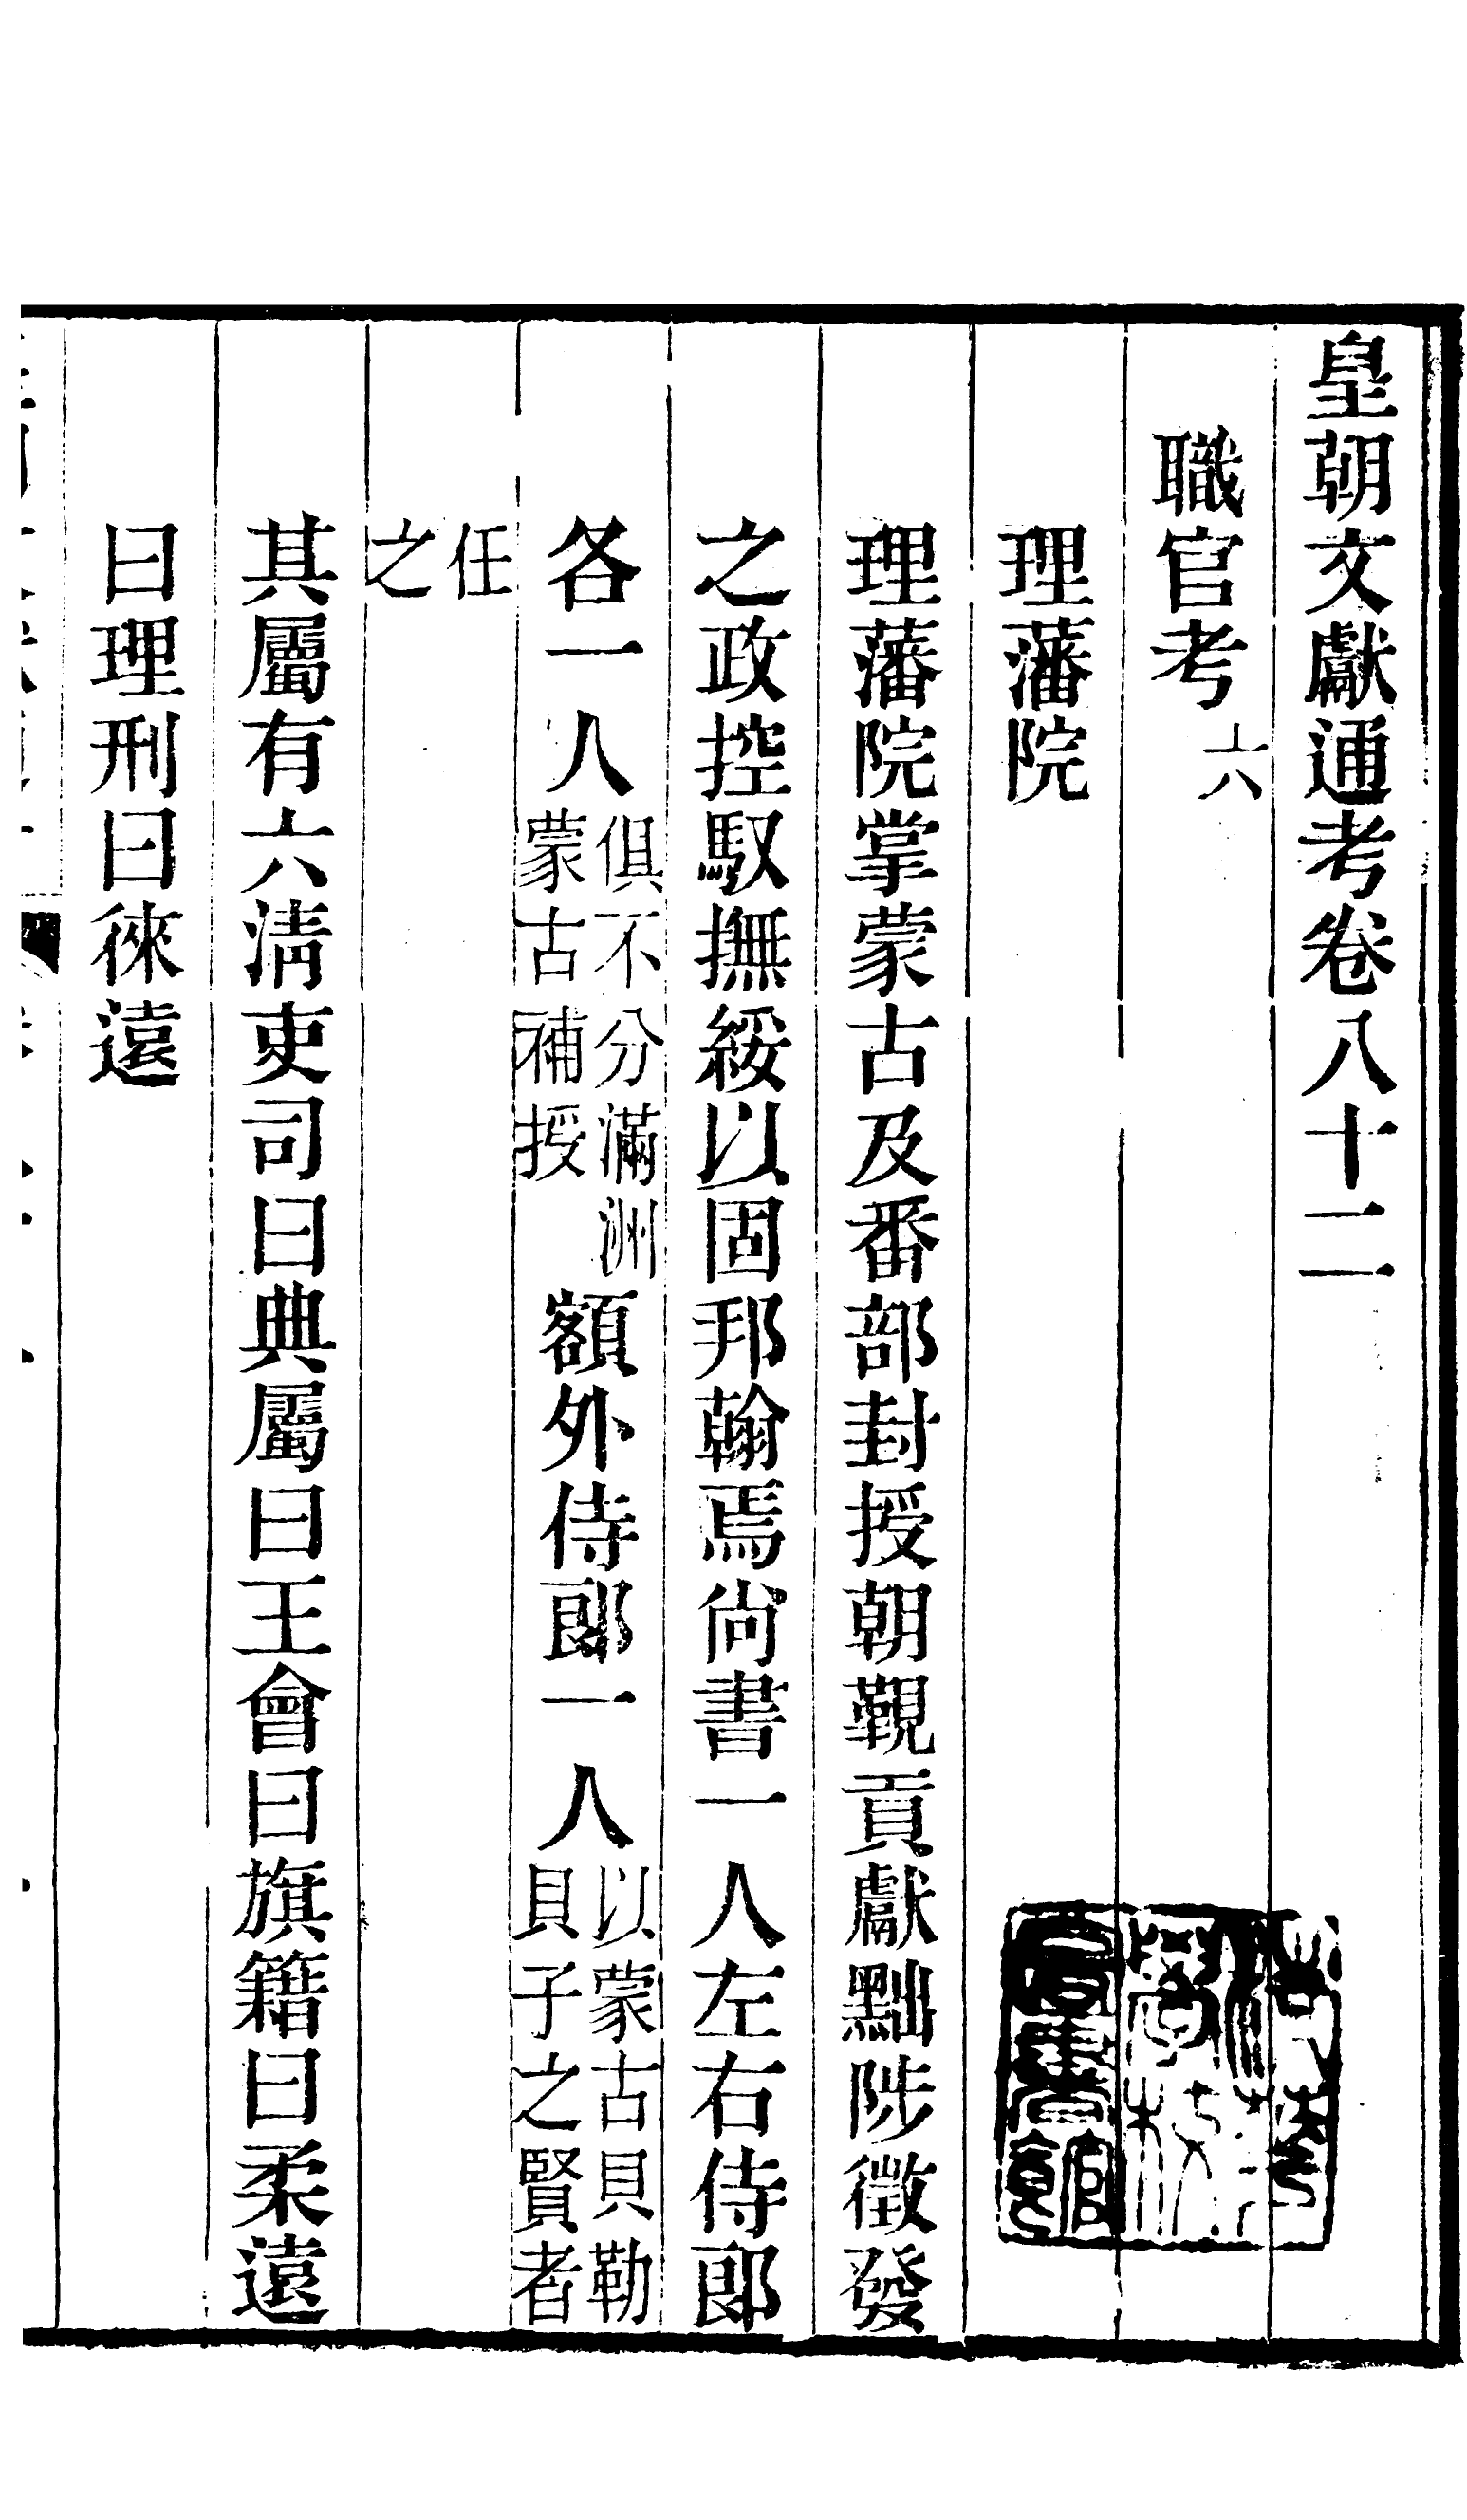 皇朝文獻通考卷八十二
職官考六
理藩院
理藩院掌蒙古及番部封授朝覲貢獻黜陟徵發
之政控馭撫綏以固邦翰焉尚書一人左右侍郎
各一人俱不分滿洲蒙古補授額外侍郎一人以蒙古貝勒貝子之賢者
任之
其屬有六淸吏司曰典屬曰王會曰旗籍曰柔遠
曰理刑曰徠遠